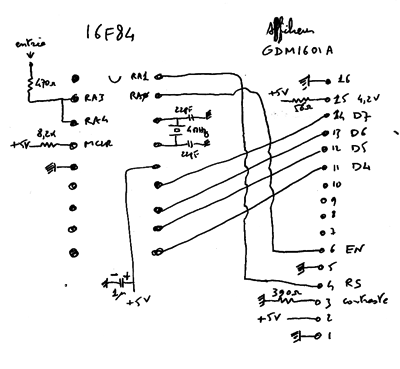 16F84
Afficheur
GDM1601A
entrée
RA1
RA0
470Ω
RA3
RA4
22pF
4MHz
22pF
8,2k
+5V
MCLR
1µ
- +
+5V
16
+5V
56Ω
15 4,2V
14 D7
13 D6
12 D5
11 D4
10
9
8
7
6 EN
5
4 RS
390Ω
3 contraste
+5V
2
1